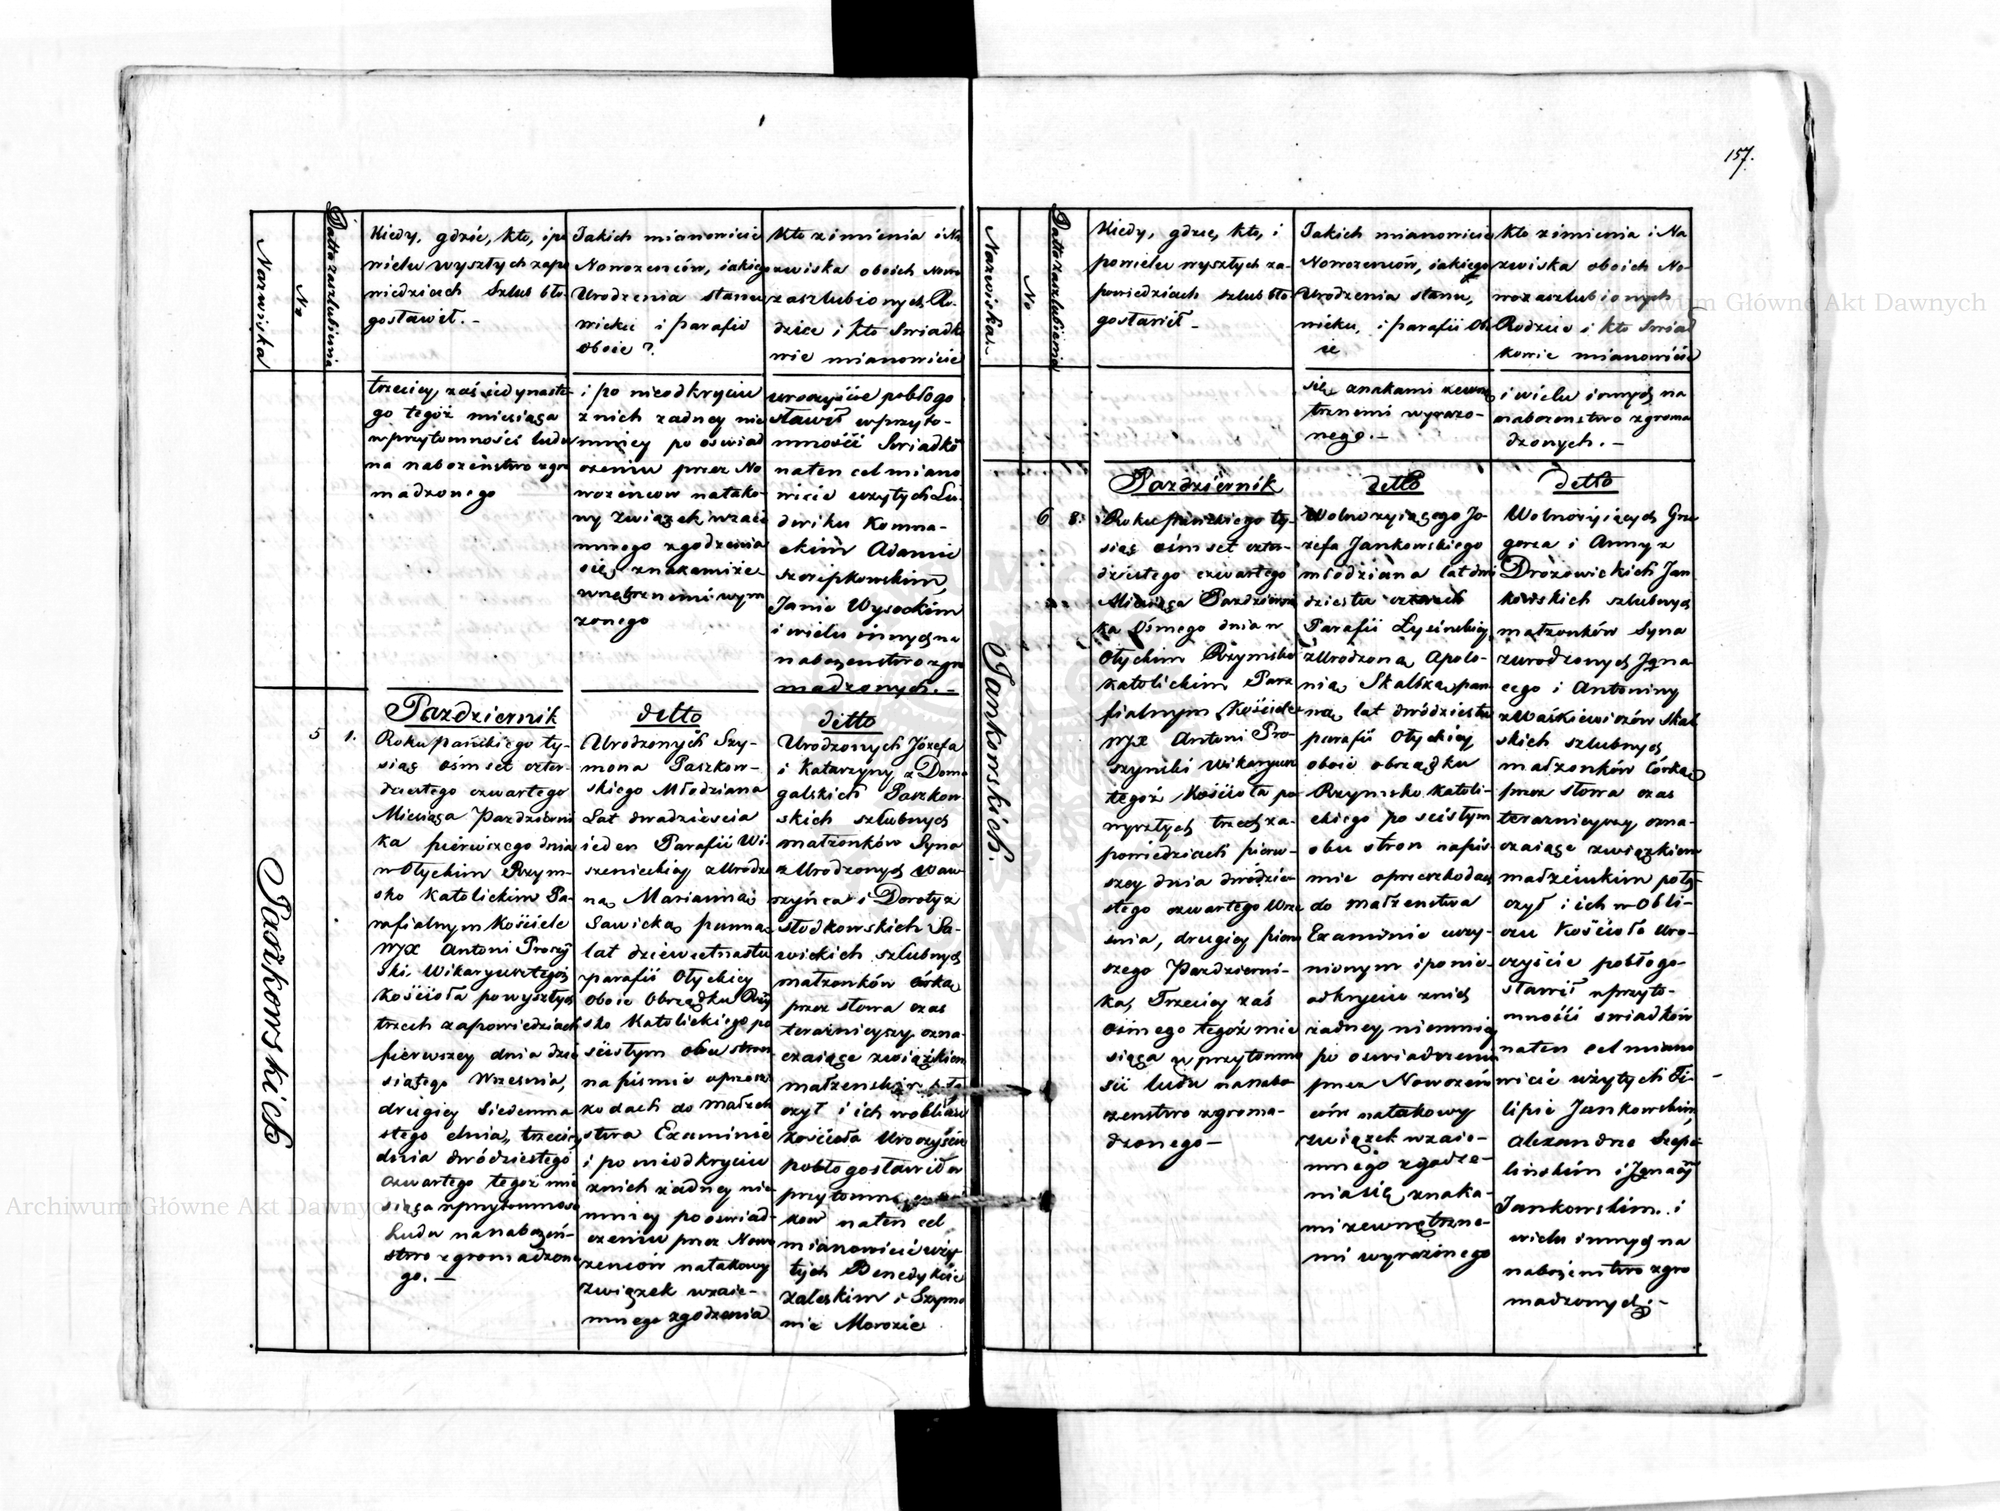 157.
Nazwiska
No
Datta zaszlubienia
Kiedy, gdzie, kto, i po
wielu wyszłych zapo
wiedziach Szlub bło-
gosławił. -
Jakich mianowicie
Nowożeńców, iakiego
Urodzenia stanu
wieku i parafii
oboie?
Kto z imienia i Na
zwiska oboich Nowo
zaszlubionych Ro-
dzice i kto Swiadko
wie mianowicie
trzeciey zaś iedynaste-
go tegóż miesiąca
w przytomności ludu
na nabożeństwo zgro
madzonego
i po nieodkryciu
z nich żadney nie
mniey po oświad
czeniu przez No
wożeńcow natako-
wy Związek wzaie
mnego zgodzenia
się znakami ze-
wnętrznemi wyra
zonego
uroczyście pobłogo
sławił w przyto-
mności Swiadkó
naten cel miano
wicie użytych Lu-
dwiku Komna-
ckim Adamie
Szczepkowskim,
Janie Wysockim
i wielu innych na
nabożenstwo zgro
madzonych. -
Paszkowskich
5
1.
Pazdziernik
Roku pańskiego ty-
siąc ośmset czter-
dziestego czwartego
Miesiąca Pazdzierni
ka pierwszego dnia
w Ołyckim Rzym-
sko Katolickim Pa-
rafialnym Kościele
WJX Antoni Proszy
ski Wikaryusz tegoż
kościoła po wyszłych
trzech zapowiedziach
pierwszey dnia dzie
siątego Wrzesnia,
drugiey Siedemna
stego dnia, trzeciey
dnia dwódziestego
czwartego tegoż mie
siąca w przytomnosci
Ludu na nabożeń-
stwo zgromadzone
go. -
detto
Urodzonych Szy-
mona Paszkow-
skiego Młodziana
Lat dwadzieścia
ieden Parafii Wi-
szenieckiey z Urodzo
ną Marianną
Sawicką panną
lat dziewietnastu
parafii Ołyckiey
oboie Obrządku Rzy
sko Katolickiego po
ścisłym obu stron
na piśmie o przesz-
kodach do Małżeń
stwa Examinie
i po nieodkryciu
z nich żadney nie-
mniey po oświad-
czeniu przez Nowo
żeńców natakowy
Związek wzaie-
mnego zgodzenia
detto
Urodzonych Józefa
i Katarzyny z Dom
galskich Paszkow
skich szlubnych
małżonków Syna
z Urodzonych Waw-
rzyńca i Doroty z
Słodkowskich Sa-
wickich szlubnych
małżonków córką
przez słowa czas
teraznieyszy ozna-
czaiące związkiem
małżenskim połą
czył i ich w obliczu
kościoła Uroczyście
pobłogosławił w
przytomności
kow naten cel
mianowicie uży-
tych Benedykcie
Zaleskim i Szymo
nie Morozie
Nazwiska
No
Datta zaszlubienia
Kiedy, gdzie, kto, i
powielu wyszłych za-
powiedziach szlub bło
gosławił -
Jakich mianowicie
Nowożeńców, iakiego
Urodzenia stanu,
wieku, i parafii Obo
ie
Kto z imienia i Na
zwiska oboich No-
wozaszlubionych
Rodzice i kto Swiad
kowie mianowicie
się znakami zewnę
trznemi wyrażo-
nego. -
i wielu innych na
nabożenstwo zgroma
dzonych. -
Jankowskich.
6
8.
Pazdziernik
Roku pańskiego ty-
siąc ośmset czter-
dziestego czwartego
Miesiąca Pazdzierni
ka Ośmego dnia w
Ołyckim Rzymsko
Katolickim Para
fialnym Kościele
WJX Antoni Pro-
szynski Wikaryusz
tegoż Kościoła po
wyszłych trzech za-
powiedziach pierw-
szey dnia dwódzie-
stego czwartego Wrze
śnia, drugiey pierw
szego Pazdzierni-
ka, Trzeciey zaś
ośmego tegoż mie
siąca w przytomno
ści ludu na nabo
żenstwo zgroma-
dzonego -
detto
Wolnożyiącego Jo-
zefa Jankowskiego
młodziana lat dwó
dziestu czterech
Parafii Łysińskiey
z Urodzoną Apolo-
nią Skalską pan
ną lat dwódziestu
parafii Ołyckiey
oboie obrządku
Rzymsko Katoli-
ckiego po ścisłym
obu stron na piś-
mie o przeszkodach
do małżenstwa
Examinie uczy-
nionym i ponie-
odkryciu z nich
żadney niemniey
po oswiadczeniu
przez Nowożeń
ców natakowy
związek wzaie-
mnego zgodze-
nia się znaka-
mi zewnętrzne-
mi wyrażonego
detto
Wolnożyiących Grze
gorza i Anny z
Drozowickich Jan
kowskich szlubnych
małżonków Syna
z urodzonych Igna-
cego i Antoniny
z Waśkiewiczów Skal
skich szlubnych
małżonków Córką
przez słowa czas
teraznieyszy ozna-
czaiące związkiem
małżeńskim połą-
czył i ich w Obli-
czu Kościoła Uro-
czyście pobłogo-
sławił w przyto-
mności swiadków
naten cel miano
wicie użytych Fi-
lipie Jankowskim,
Alexandrze Szepe-
lińskim i Ignacy
Jankowskim. i
wielu innych na
nabożenstwo zgro
madzonych. -
Archiwum Główne Akt Dawnych
Archiwum Główne Akt Dawnych